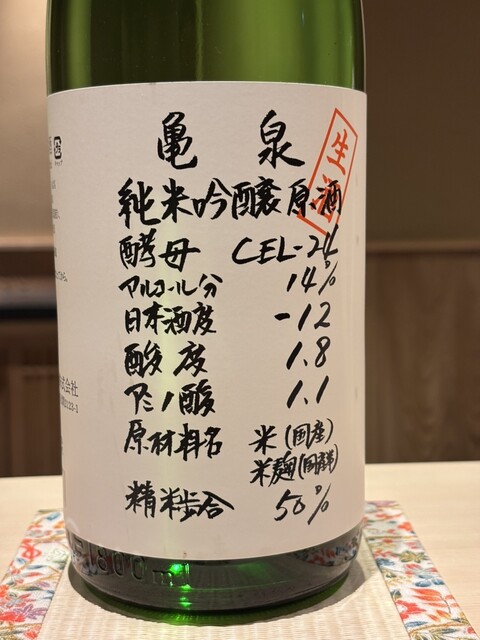 亀泉
生酒
純米吟醸原酒
酵母 CEL-24
アルコール分 14%
日本酒度 -12
酸度 1.8
アミノ酸 1.1
原材料名 米(国産)
米麹(国産米)
精米歩合 50%
1800ml